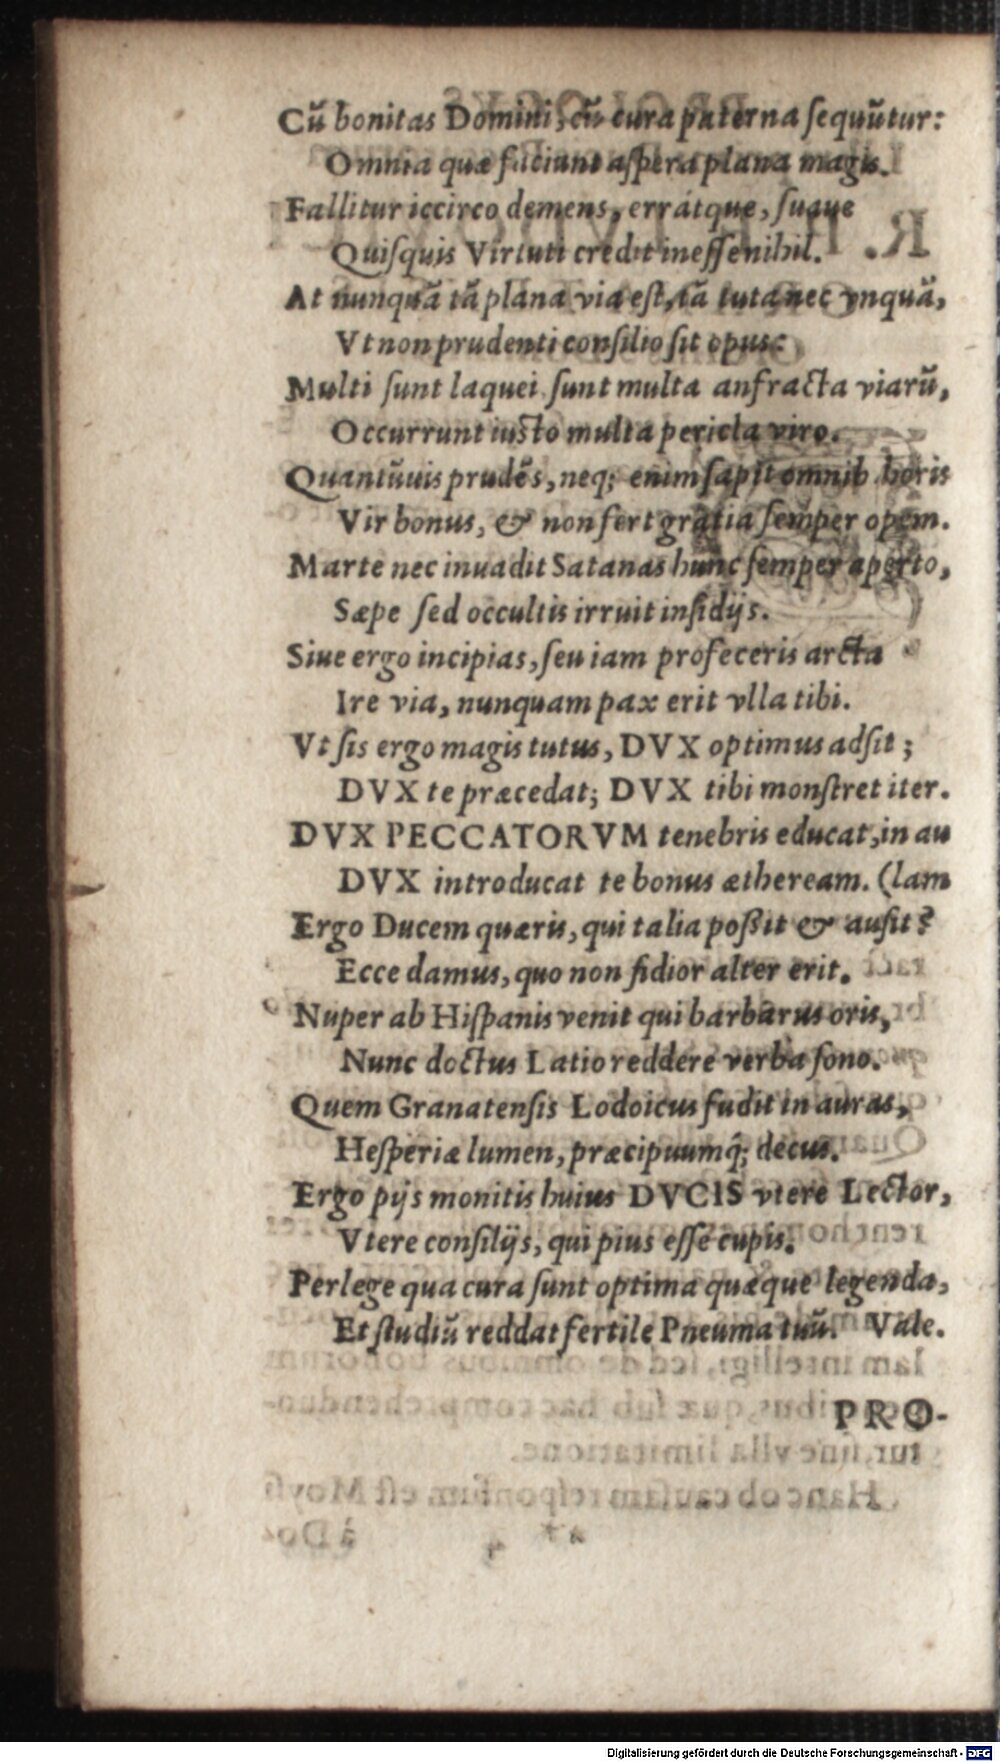 Cũ bonitas Domini, cũ cura paterna ſequũtur:
Omnia quæ faciunt aſpera plana magis.
Fallitur iccirco demens, errátque, ſuaue
Quiſquis Virtuti credit ineſſe nihil.
At nunquã tã plana via eſt, tã tuta nec vnquã,
Vt non prudenti conſilio ſit opus:
Multi ſunt laquei ſunt multa anfracta viarũ,
Occurrunt iusto multa pericla viro.
Quantũuis prudẽs, neq; enim ſapit omnib. horis
Vir bonus, & non fert gratia ſemper opem.
Marte nec inuadit Satanas hunc ſemper aperto,
Sæpe ſed occultis irruit inſidijs.
Siue ergo incipias, ſeu iam profeceris arcta
Ire via, nunquam pax erit vlla tibi.
Vt ſis ergo magis tutus, DVX optimus adſit;
DVX te præcedat; DVX tibi monſtret iter.
DVX PECCATORVM tenebris educat, in au
DVX introducat te bonus æthеream. (lam
Ergo Ducem quæris, qui talia poßit & auſit?
Ecce damus, quo non fidior alter erit.
Nuper ab Hiſpanis venit qui barbarus oris,
Nunc doctus Latio reddere verba ſono.
Quem Granatenſis Lodoicus fudit in auras,
Heſperiæ lumen, præcipuumq́; decus.
Ergo pijs monitis huius DVCIS vtere Lector,
Vtere conſilijs, qui pius eſſe cupis.
Perlege qua cura ſunt optima quæque legenda,
Et ſtudiũ reddat fertile Pneuma tuũ. Vale.
PRO-
Digitalisierung gefördert durch die Deutsche Forschungsgemeinschaft - DFG